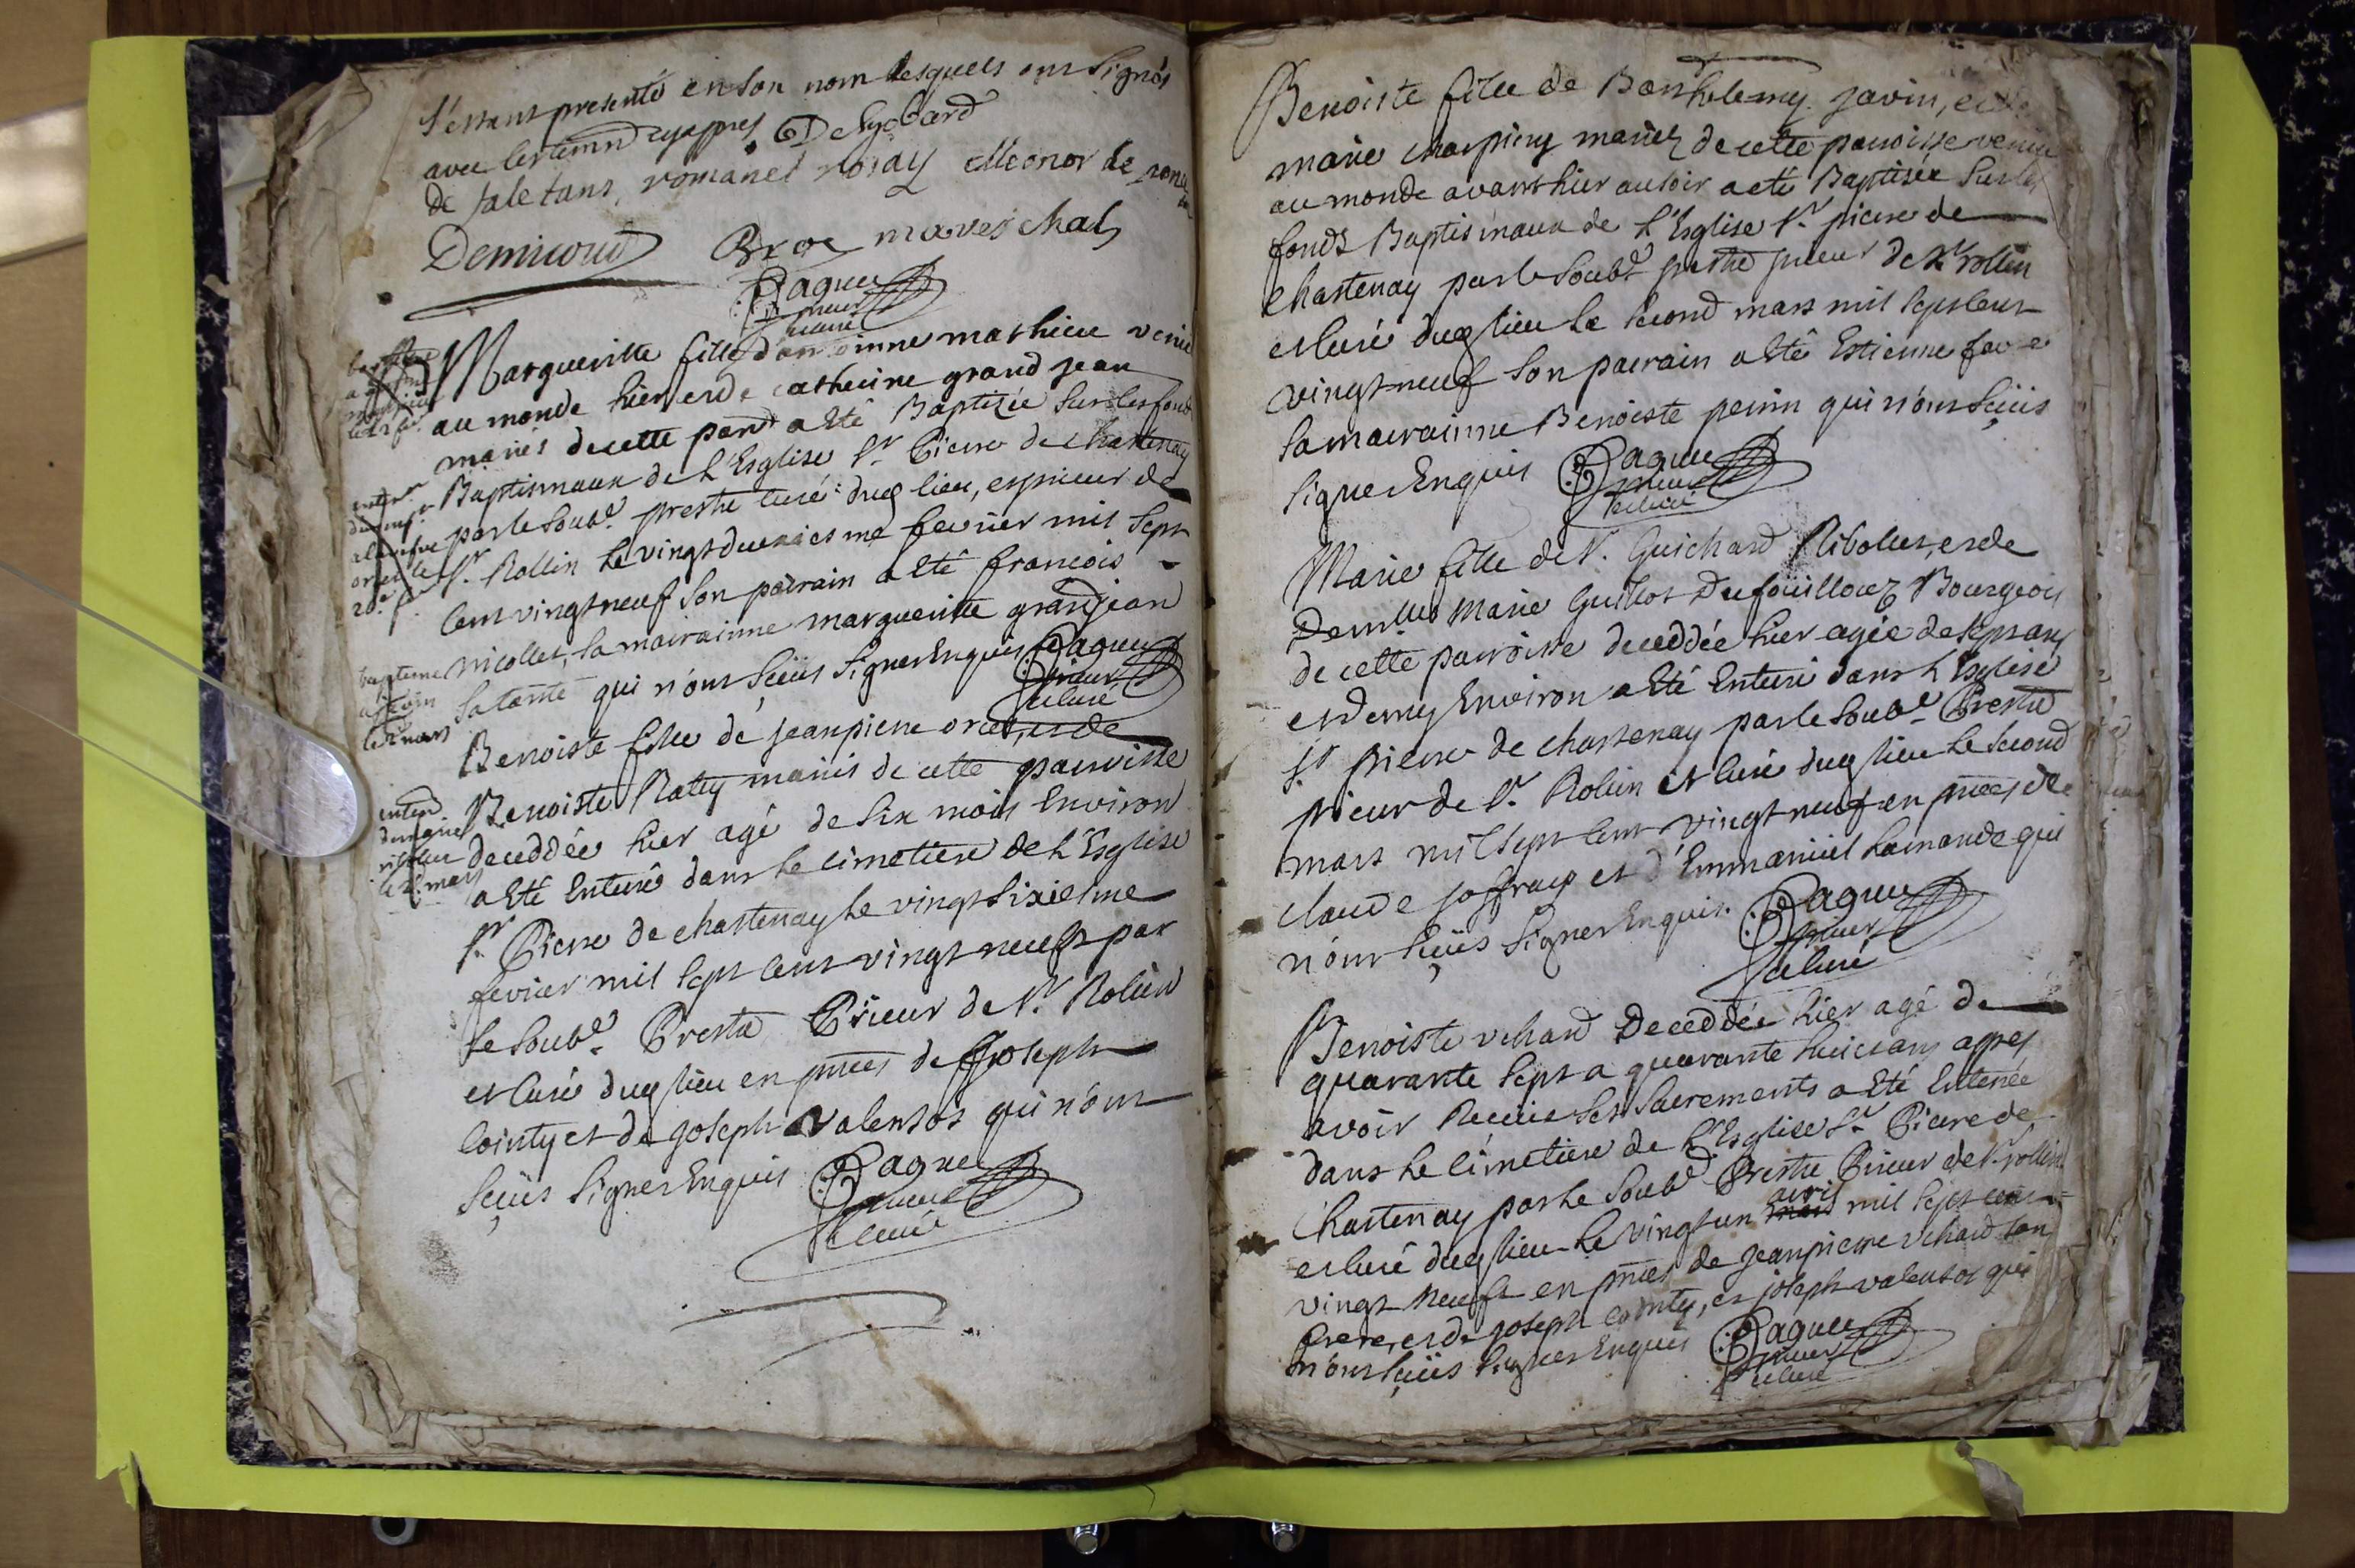 s'estant presenté en son nom lesquels ont signés
avec les temn cyappres
de saletans, romanet rosay elleonor de
Demicoud Broc mareschal
Paguee
prieur
et curé
Margueritte fille d'antoinne mathieu venüe
au monde hier et de catherine grand jean
mariés de cette par a Eté Baptizée sur les fond
Baptismaux de l'Esglise St Pierre de chastenay
par le soubd prestre curé dug lieu, et prieur de
St Rollin le vingt deuxiesme fevrier mil sept
cent vingt neuf son pairain a Eté francois
nicollet, sa mairainne margueritte grandjean
sa tante qui n'ont sceüs signer Enquis Paguee
prieur
et curé
Benoiste fille de jeanpierre oriet, et de
Benoiste Ratey mariés de cette parroisse
deceddée hier agé de six mois Environ
a Eté Enterré dans le cimetiere de l'Esglise
St Pierre de chastenay le vingt sixiesme
fevrier mil sept cent vingt neufs par
le soubd Prestre Prieur de St Rolin
et curé dug lieu en pnces de Joseph
cointy et de joseph valentos qui n'ont
sceüs signer Enquis Paguee
prieur
et curé
bapteme
a javin
le 2 mars
enter
de marie
ribolet
le 2e mars
Benoiste fille de Barthelemy javin, et de
marie charpiny mariez de cette parroisse venüe
au monde avant hier au soir a eté Baptisée sur les
fonds Baptismaux de l'Esglise St pierre de
chastenay par le soubd prestre prieur de St rollin
et curé dug lieu le second mars mil sept cent
vingt neuf son pairain a Eté Estienne favre
sa mairainne Benoiste perrin qui n'ont sceüs
signer Enquis Paguee
prieur
et curé
Marie fille de Sr Guichard Ribolet, et de
Demlle Marie Guillot Dufoüillouz Bourgeois
de cette parroisse deceddée hier agée de sept ans
et demy Environ a Eté Enterré dans l'Esglise
St pierre de chastenay par le soubd Prestre
prieur de St Rolin et curé dug lieu le second
mars mil sept cent vingt neuf en pnces de
claude joffray et d'Emmanuel lamande qui
n'ont sceüs signer Enquis. Paguee
prieur
et curé
Benoiste vchard Deceddée hier agé de
quarante sept a quarante huict ans appres
avoir Receüe les sacrements a Eté Enterrée
dans le cimetiere de l'Esglise St Pierre de
Chastenay par le soubd Prestre Prieur de St rollin
et curé dug lieu le vingt un mars avril mil sept cent
vingt neufs en pnces de jeanpierre vchard son
frere, et de joseph cointy, et joseph valentos qui
n'ont sceüs signer Enquis Paguee
prieur
et curé